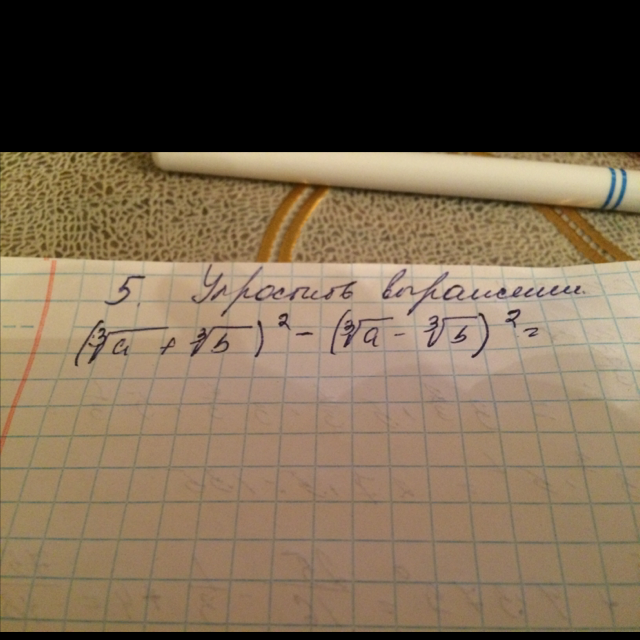 5. Упростить выражении
(∛a + ∛b)² - (∛a - ∛b)² =